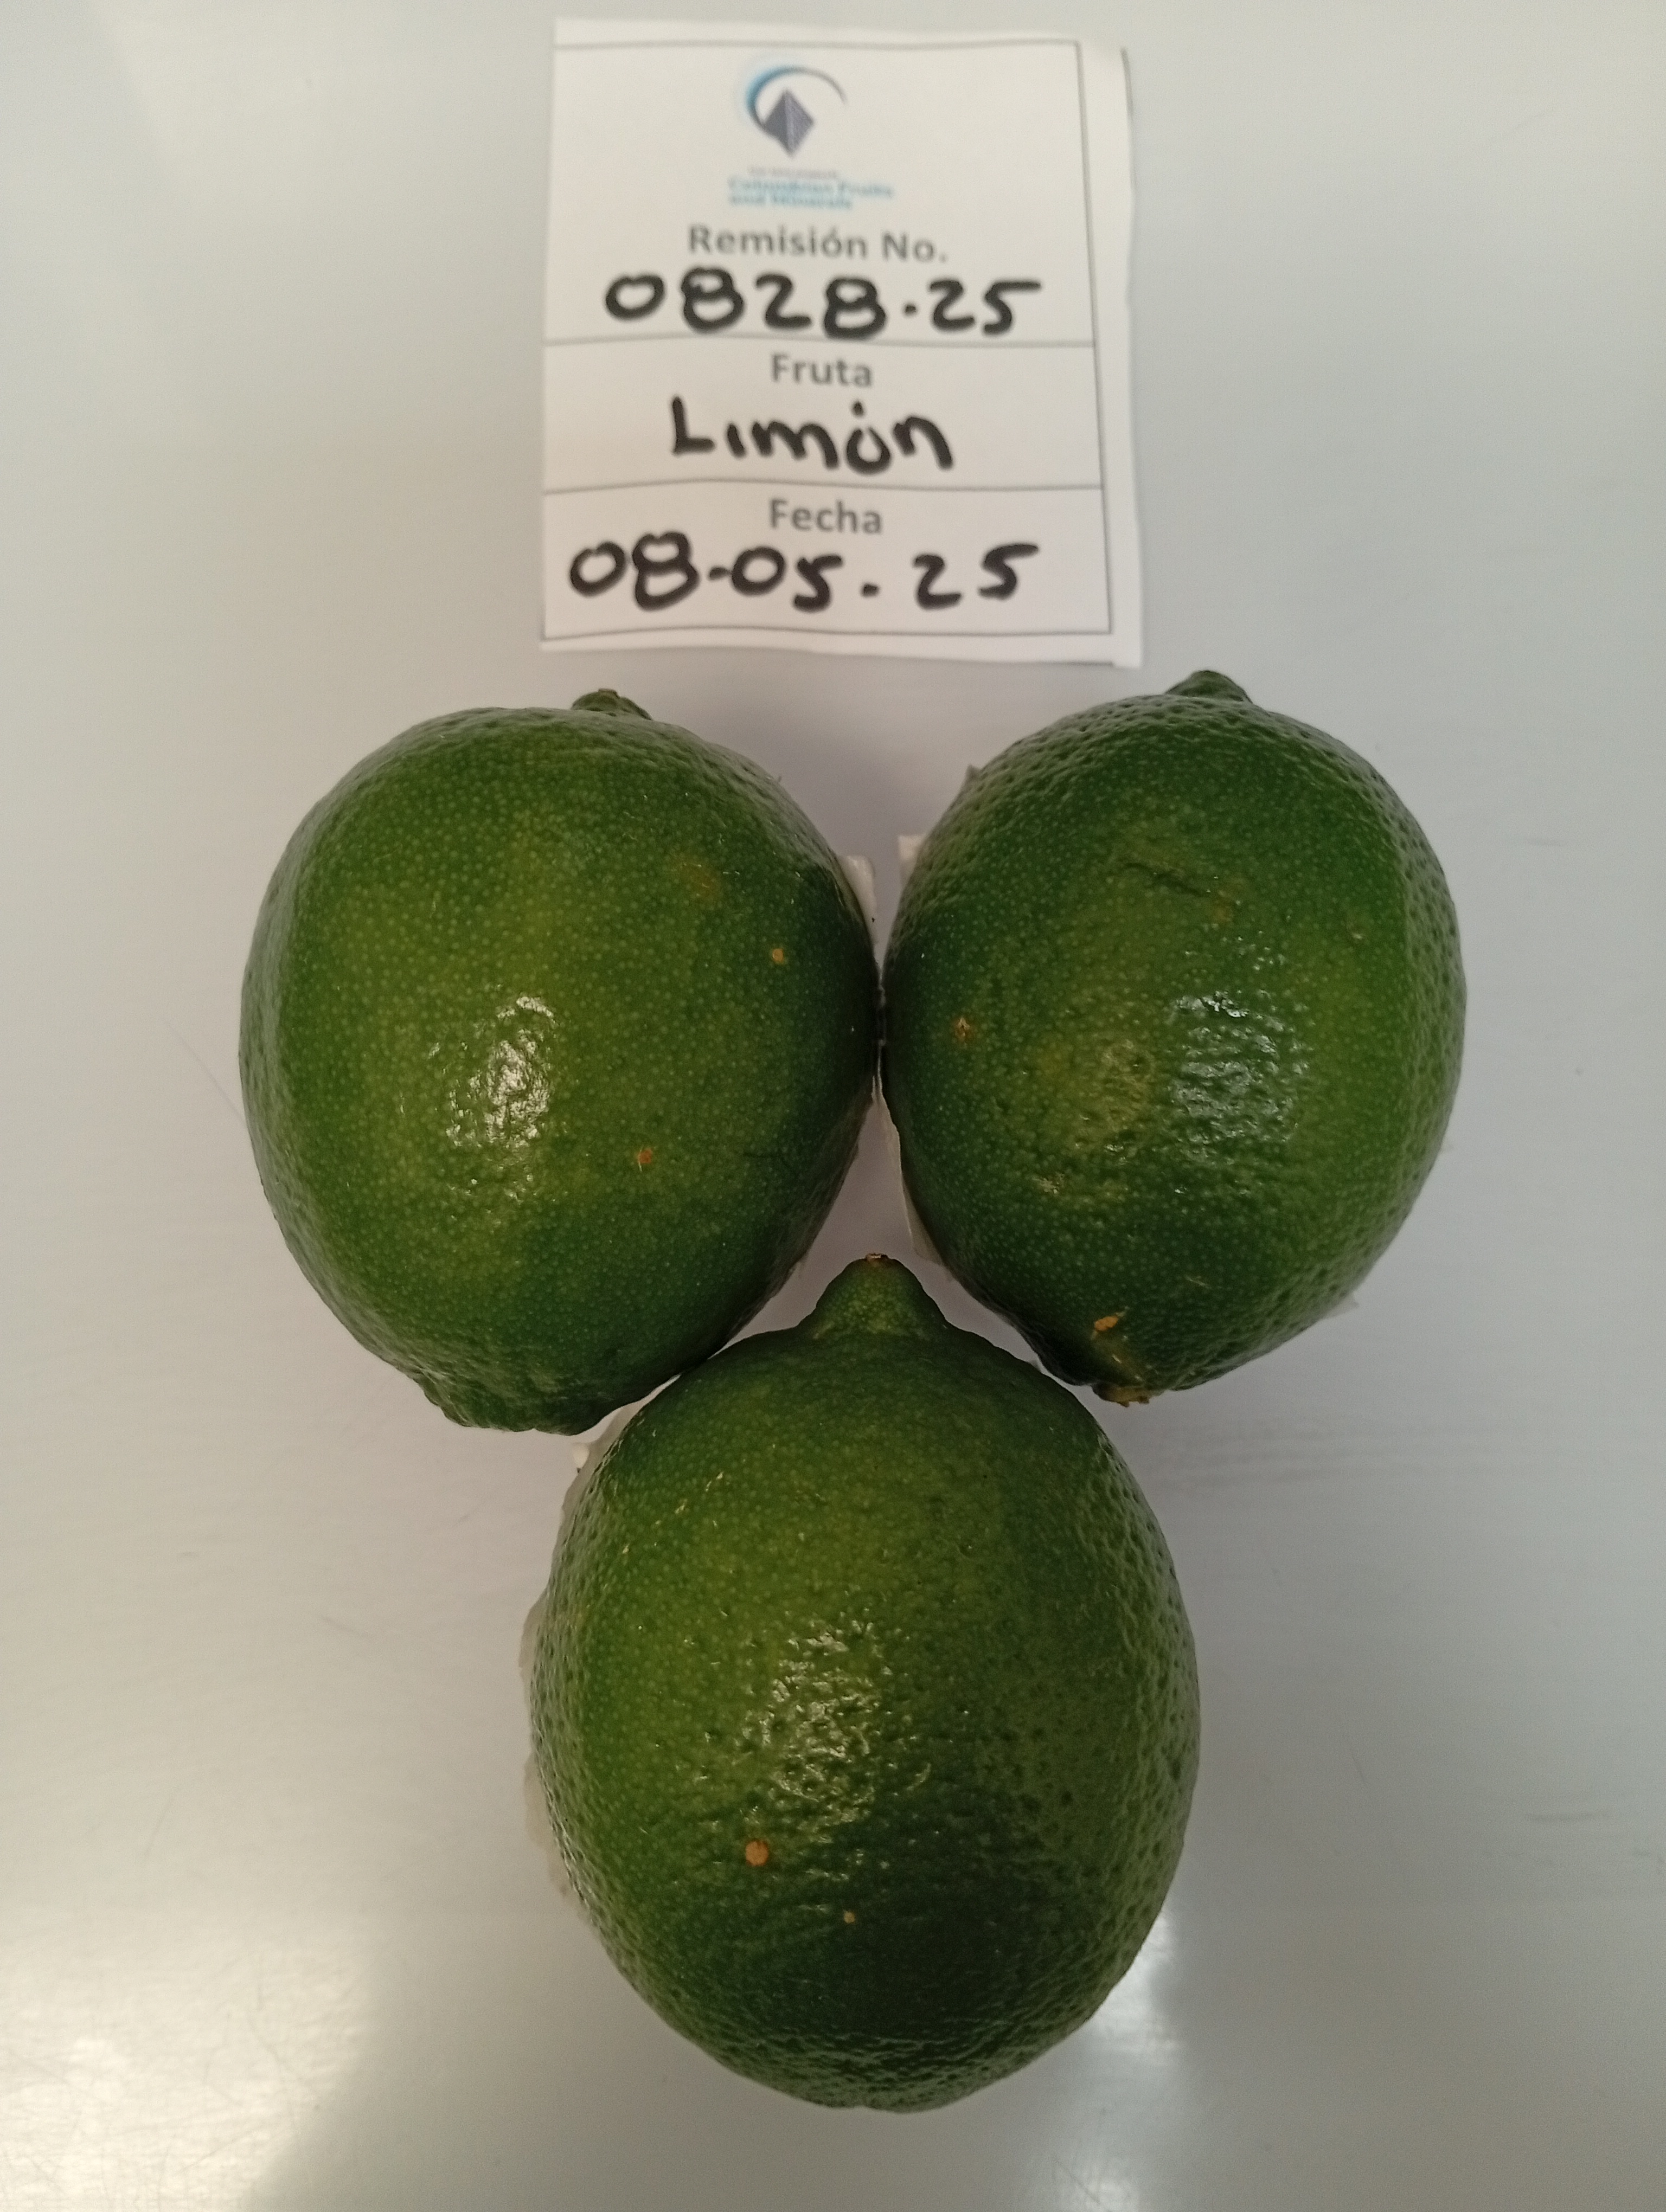 Colombian Fruits
and Minerals
Remisión No.
0828.25
Fruta
Limón
Fecha
08-05.25